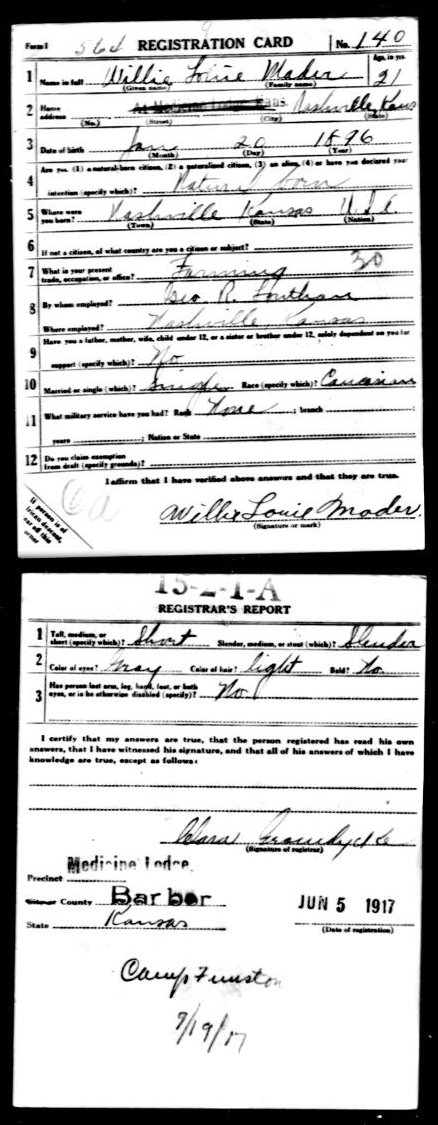 Form 1 564 REGISTRATION CARD No. 140
Age, in yrs.
1 Name in full Willie Louie Mader 21
(Given name) (Family name)
2 Home address At Medicine Lodge Kans. Nashville, Kans
(No.) (Street) (City) (State)
3 Date of birth Jan 20 1896
(Month) (Day) (Year)
4 Are you (1) a natural-born citizen, (2) a naturalized citizen, (3) an alien, (4) or have you declared your
intention (specify which)? Natural born
5 Where were you born? Nashville Kansas U.S.A.
(Town) (State) (Nation)
6 If not a citizen, of what country are you a citizen or subject?
7 What is your present trade, occupation, or office? Farming 30
8 By whom employed? Geo R.
Where employed? Nashville, Kansas
9 Have you a father, mother, wife, child under 12, or a sister or brother under 12, solely dependent on you for
support (specify which)? No
10 Married or single (which)? Single Race (specify which)? Caucasian
11 What military service have you had? Rank None ; branch
years ; Nation or State
12 Do you claim exemption from draft (specify grounds)?
I affirm that I have verified above answers and that they are true.
Willie Louie Mader.
(Signature or mark)
If person is of
African descent,
tear off this
corner
15-2-1-A
REGISTRAR'S REPORT
1 Tall, medium, or short (specify which)? Short Slender, medium, or stout (which)? Slender
2 Color of eyes? Gray Color of hair? light Bald? No
3 Has person lost arm, leg, hand, foot, or both eyes, or is he otherwise disabled (specify)? No
I certify that my answers are true, that the person registered has read his own
answers, that I have witnessed his signature, and that all of his answers of which I have
knowledge are true, except as follows:
Clara
(Signature of registrar)
Precinct Medicine Lodge,
County Barber
State Kansas
JUN 5 1917
(Date of registration)
Camp Funston
9/19/17